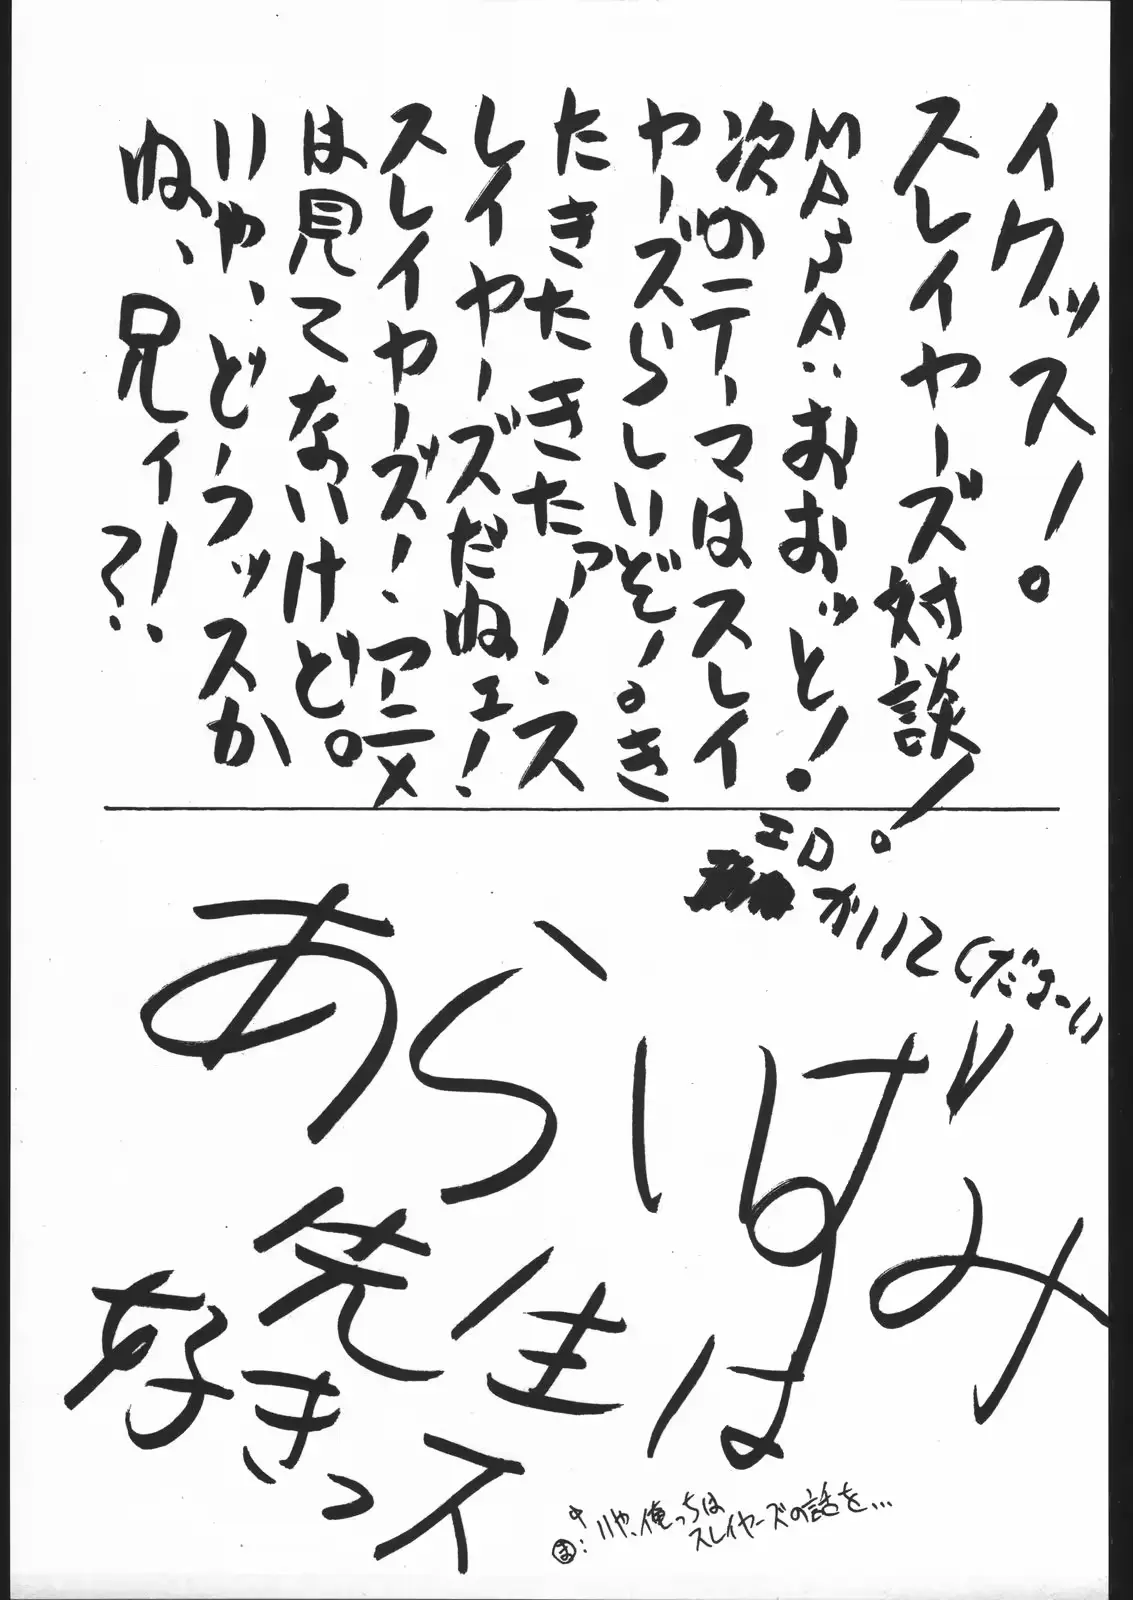 イクッス!。
スレイヤーズ対談!。
MASA:おおッと!。
次のテーマはスレイ
ヤーズらしいぞ!。き
たきたきたァー!、ス
レイヤーズだねェ!
スレイヤーズ!、アニメ
は見てないけど。
いや、どーッスか
ね、兄ィ!?
エロ
かいてくださーい
あらいずみ
先生は
好きっス
ま:いや、俺っちは
スレイヤーズの話を…